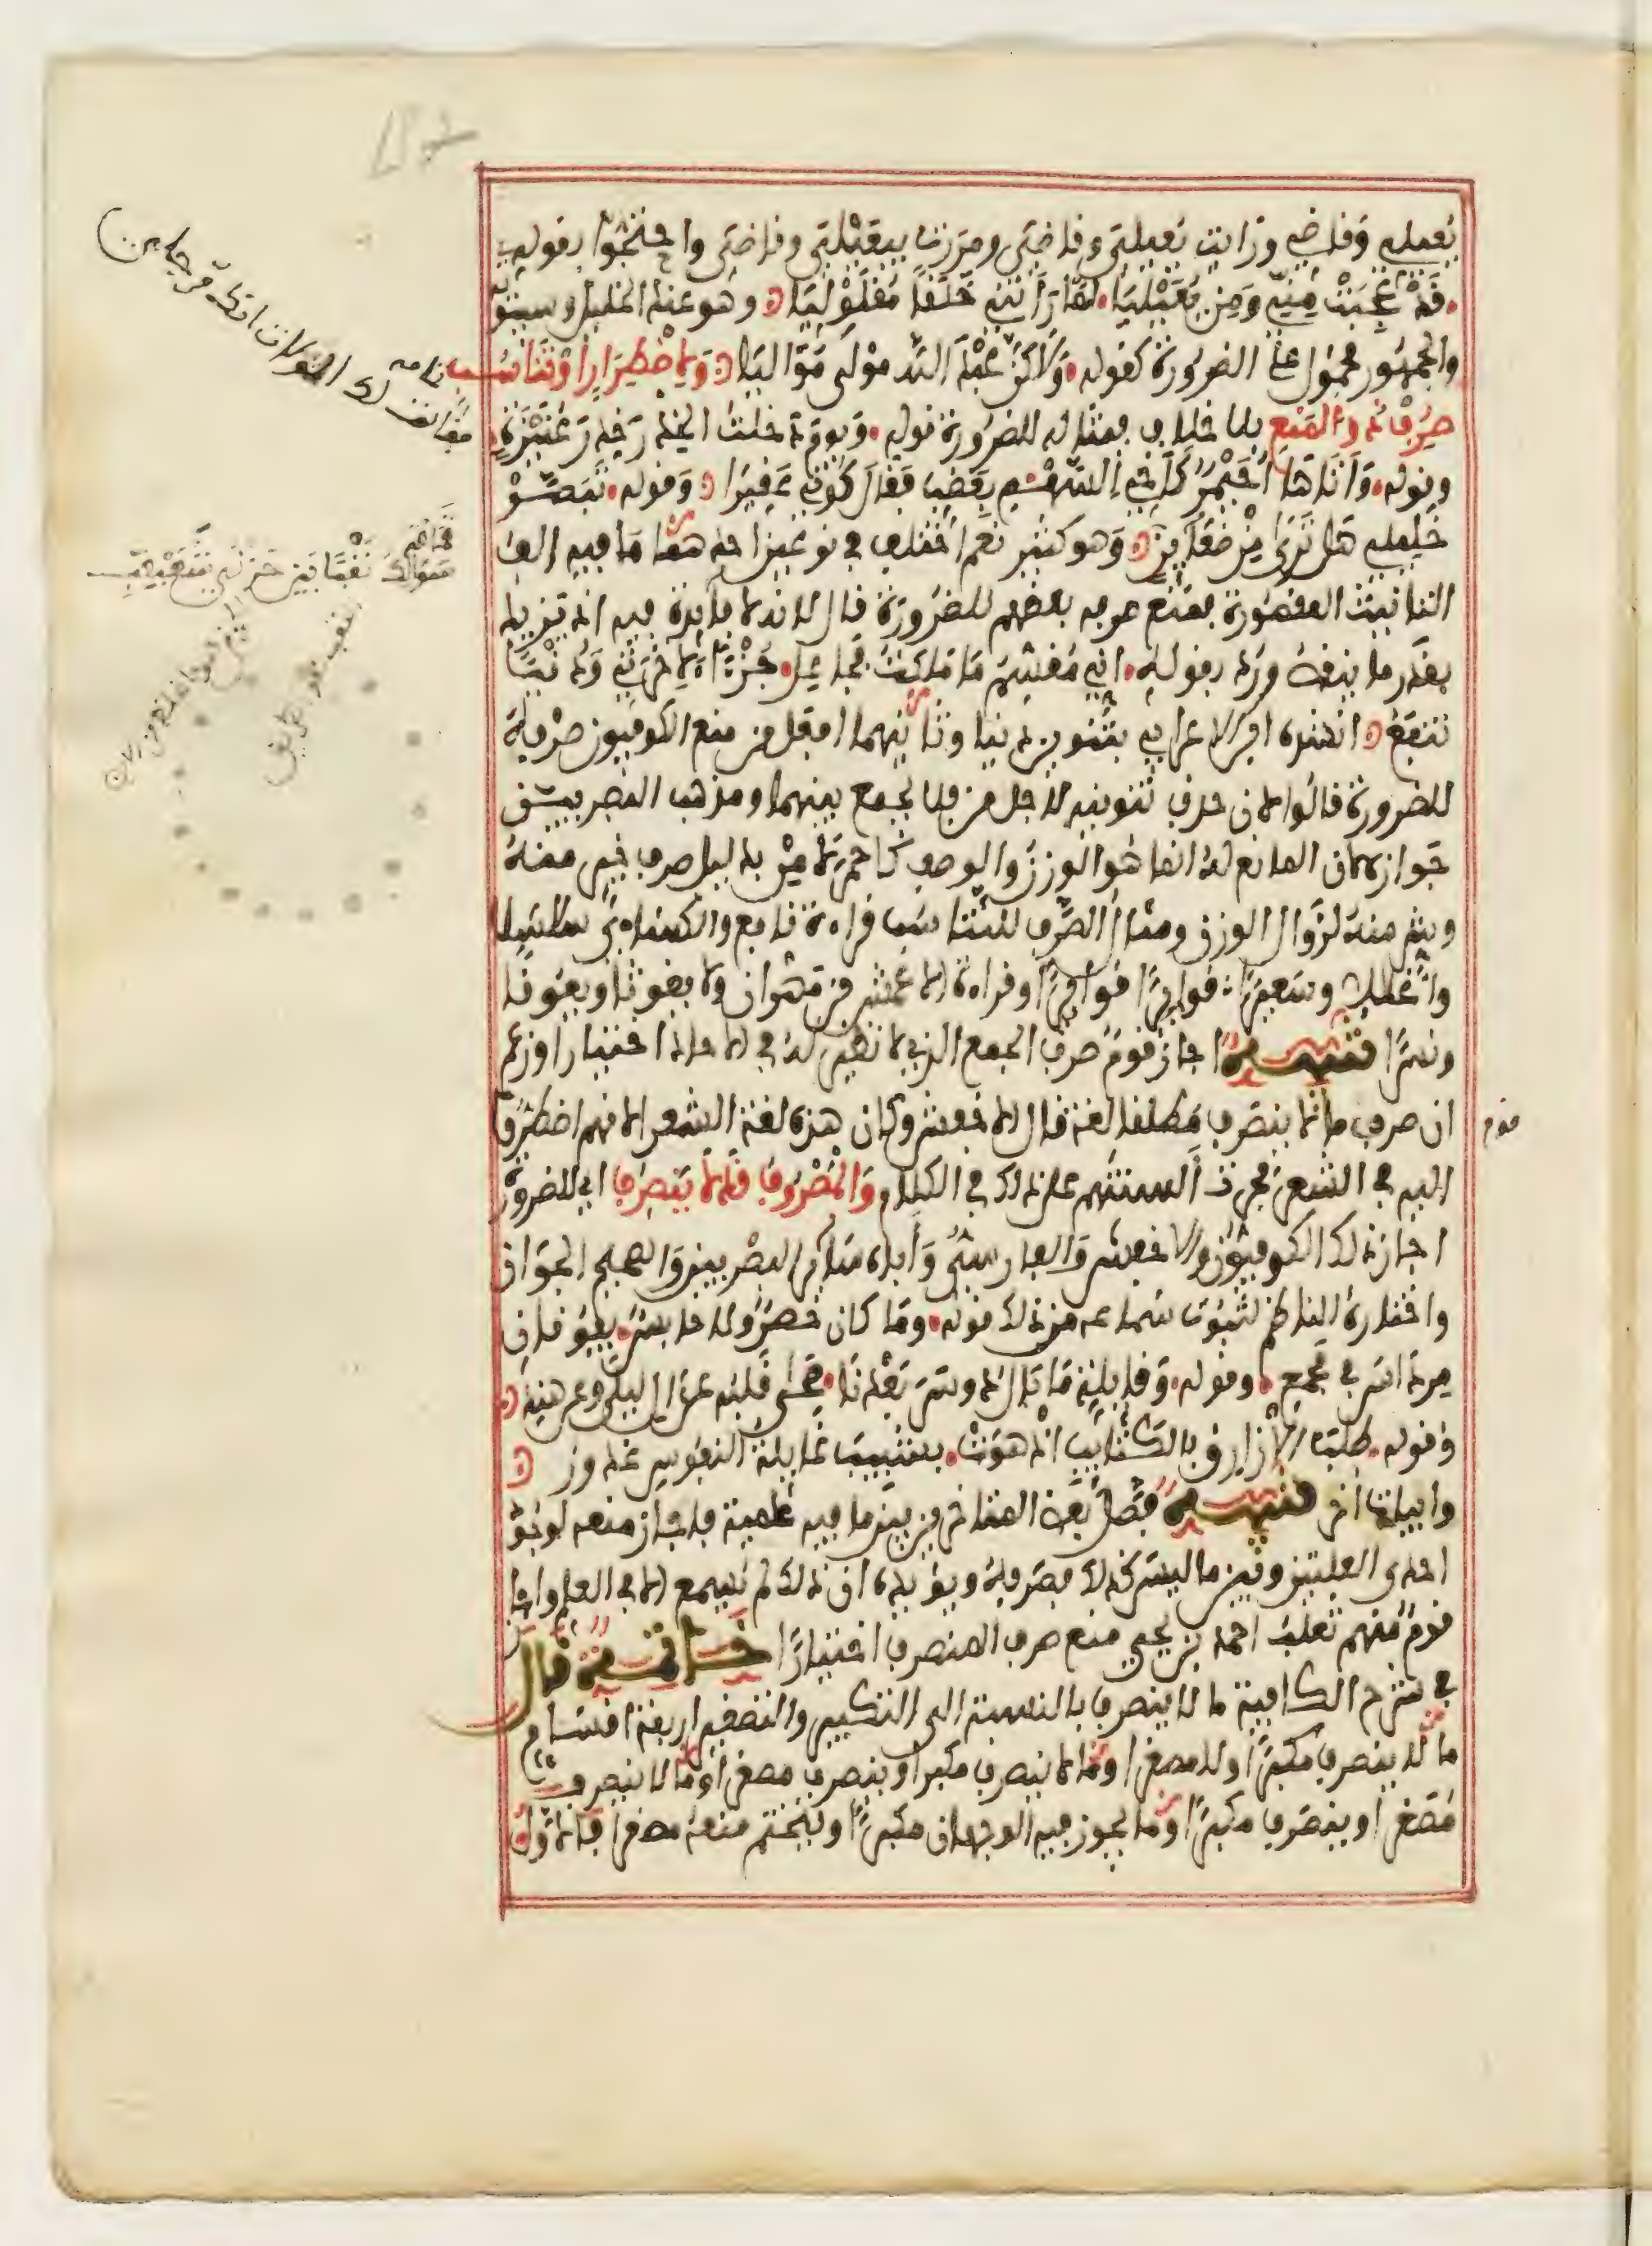 يعيلي وقاضي ورأيت يعيلي وقاضي ومررت بيعيلي وقاضي واحتجوا بقوله
قد عجبت مني ومن يعيليا لما رأتني خلقا مقلوليا وهو عند الخليل وسيبويه
والجمهور محمول على الضرورة كقوله ولاكن عبد الله مولى مواليا ولاضطرار او تناسب
صرف ذو المنع بلا خلاف فمثاله للضرورة قوله ويوم دخلت الخدر خدر عنيزة
وقوله وأتاها أحيمر كأخي السهم بعضب فقال كوني عقيرا وقوله تبصر
خليلي هل ترى من ضعائن وهو كثير نعم اختلف في نوعين احدهما ما فيه الف
التانيث المقصورة فمنع صرفه بعضهم للضرورة قال لانه لا فايدة فيه اذ يزيد
بقدر ما ينقص ورد بقوله اني مقسم ما ملكت فجاعل جزءا لاخرتي ودنيا
تنفع انشده ابن الاعرابي بتنوين دنيا وثانيهما افعل من منع الكوفيون صرفه
للضرورة قالوا لان حذف تنوينه لاجل من فلا يجمع بينهما ومذهب البصريين
جوازه لان المانع له انما هو الوزن والوصف كاحمر لا من بدليل صرف خير منه
وشر منه لزوال الوزن ومثال الصرف للتناسب قراءة نافع والكساءي سلاسلا
واغللا وسعيرا قواريرا قواريرا وقراءة الاعمش بن مهران ولا يغوثا ويعوقا
ونسرا تنبيه اجاز قوم صرف الجمع الذي لا نظير له في الاحاد اختيارا وزعم
ان صرف ما لا ينصرف مطلقا لغة قال الاخفش وكان هذه لغة الشعر الانهم اضطروا
اليه في الشعر فجرت ألسنتهم على ذلك في الكلام والمصروف قد لا ينصرف اي للضرورة
اجاز ذلك الكوفيون والاخفش والفارسي وأباه سائر البصريين والصحيح الجواز
واختاره الناظم لثبوت سماعه من ذلك قوله وما كان حصن ولا حابس يفوقان
مرداس في مجمع وقوله وقايلة ما بال دوسر بعدنا صحى قلبه عن ال ليلى وعن هند
وقوله طلب الازارق بالكتايب اذ هوت بشبيب غايلة النفوس غدور
وابيات اخر تنبيه فصل بعض المتاخرين بين ما فيه علمية فاجاز منعه لوجود
احدى العلتين وبين ما ليس كذلك فصرفه ويؤيده ان ذلك لم يسمع الا في العلم واجاز
قوم منهم ثعلب احمد بن يحيى منع صرف المنصرف اختيارا خاتمة قال
في شرح الكافية ما لا ينصرف بالنسبة الى التكبير والتصغير اربعة اقسام
ما لا ينصرف مكبرا ولا مصغرا وما لا ينصرف مكبرا وينصرف مصغرا وما لا ينصرف
مصغرا وينصرف مكبرا وما يجوز فيه الوجهان مكبرا ويتحتم منعه مصغرا فالاول
قوم